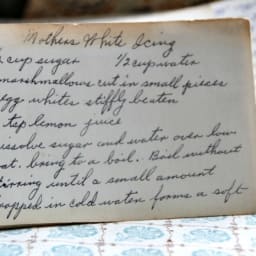 Mothers White Icing
cup sugar 1/2 cup water
marshmallows cut in small pieces
egg whites stiffly beaten
tsp lemon juice
issolve sugar and water over low
at. bring to a boil. Boil without
tirring until a small amount
ropped in cold water forms a soft